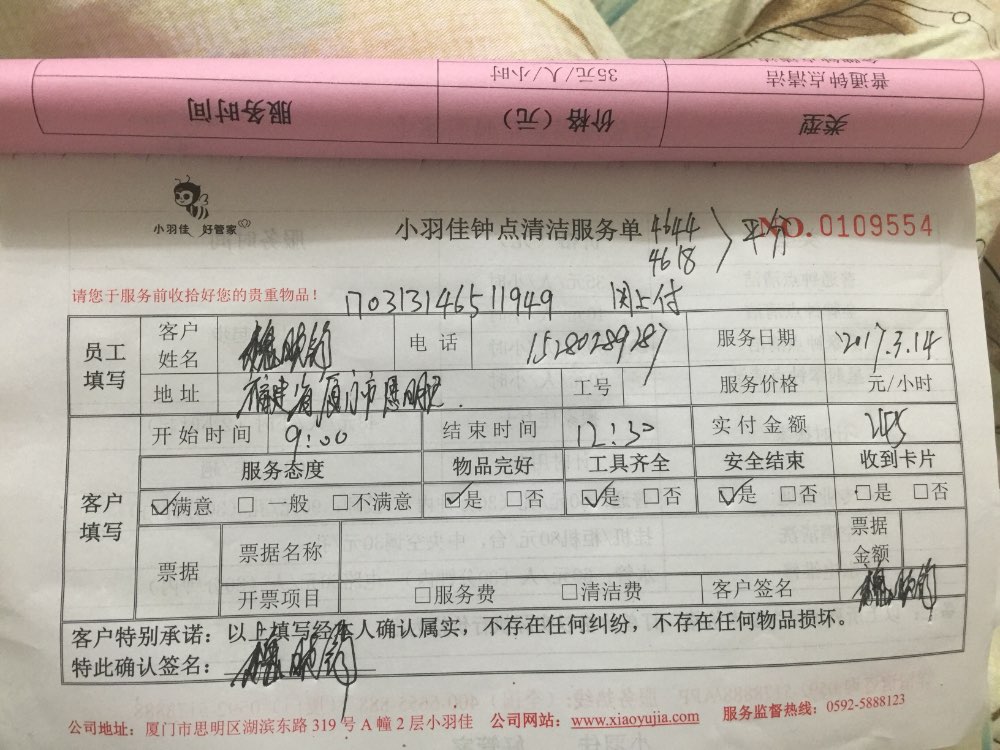 普通钟点清洁 35元/人/小时
类型 价格（元） 服务时间
小羽佳 好管家
小羽佳钟点清洁服务单
4644
4618
平分
NO. 0109554
请您于服务前收拾好您的贵重物品！
170313146511949 网上付
员工填写 客户姓名 电话 15280289287 服务日期 2017.3.14
地址 福建省厦门市思明区 工号 服务价格 元/小时
客户填写 开始时间 9:00 结束时间 12:30 实付金额 245
服务态度 物品完好 工具齐全 安全结束 收到卡片
☑满意 □一般 □不满意 ☑是 □否 ☑是 □否 ☑是 □否 □是 □否
票据 票据名称 票据金额
开票项目 □服务费 □清洁费 客户签名
客户特别承诺：以上填写经本人确认属实，不存在任何纠纷，不存在任何物品损坏。
特此确认签名：
公司地址：厦门市思明区湖滨东路 319 号 A 幢 2 层小羽佳 公司网站：www.xiaoyujia.com 服务监督热线：0592-5888123